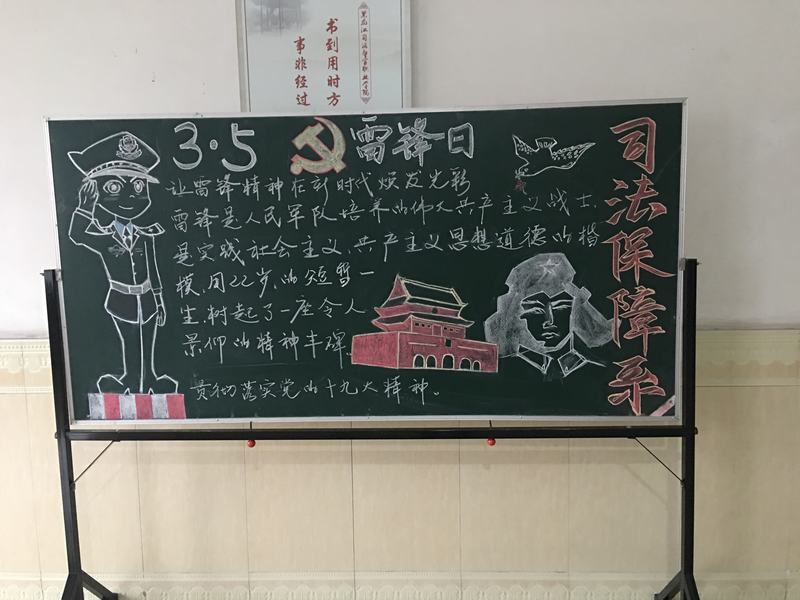 书到用时方
事非经过
黑龙江司法警官职业学院
3·5 雷锋日
让雷锋精神在新时代焕发光彩
雷锋是人民军队培养的伟大共产主义战士,
是实践社会主义、共产主义思想道德的楷
模,用22岁的短暂一
生,树起了一座令人
景仰的精神丰碑.
贯彻落实党的十九大精神。
司法保障系